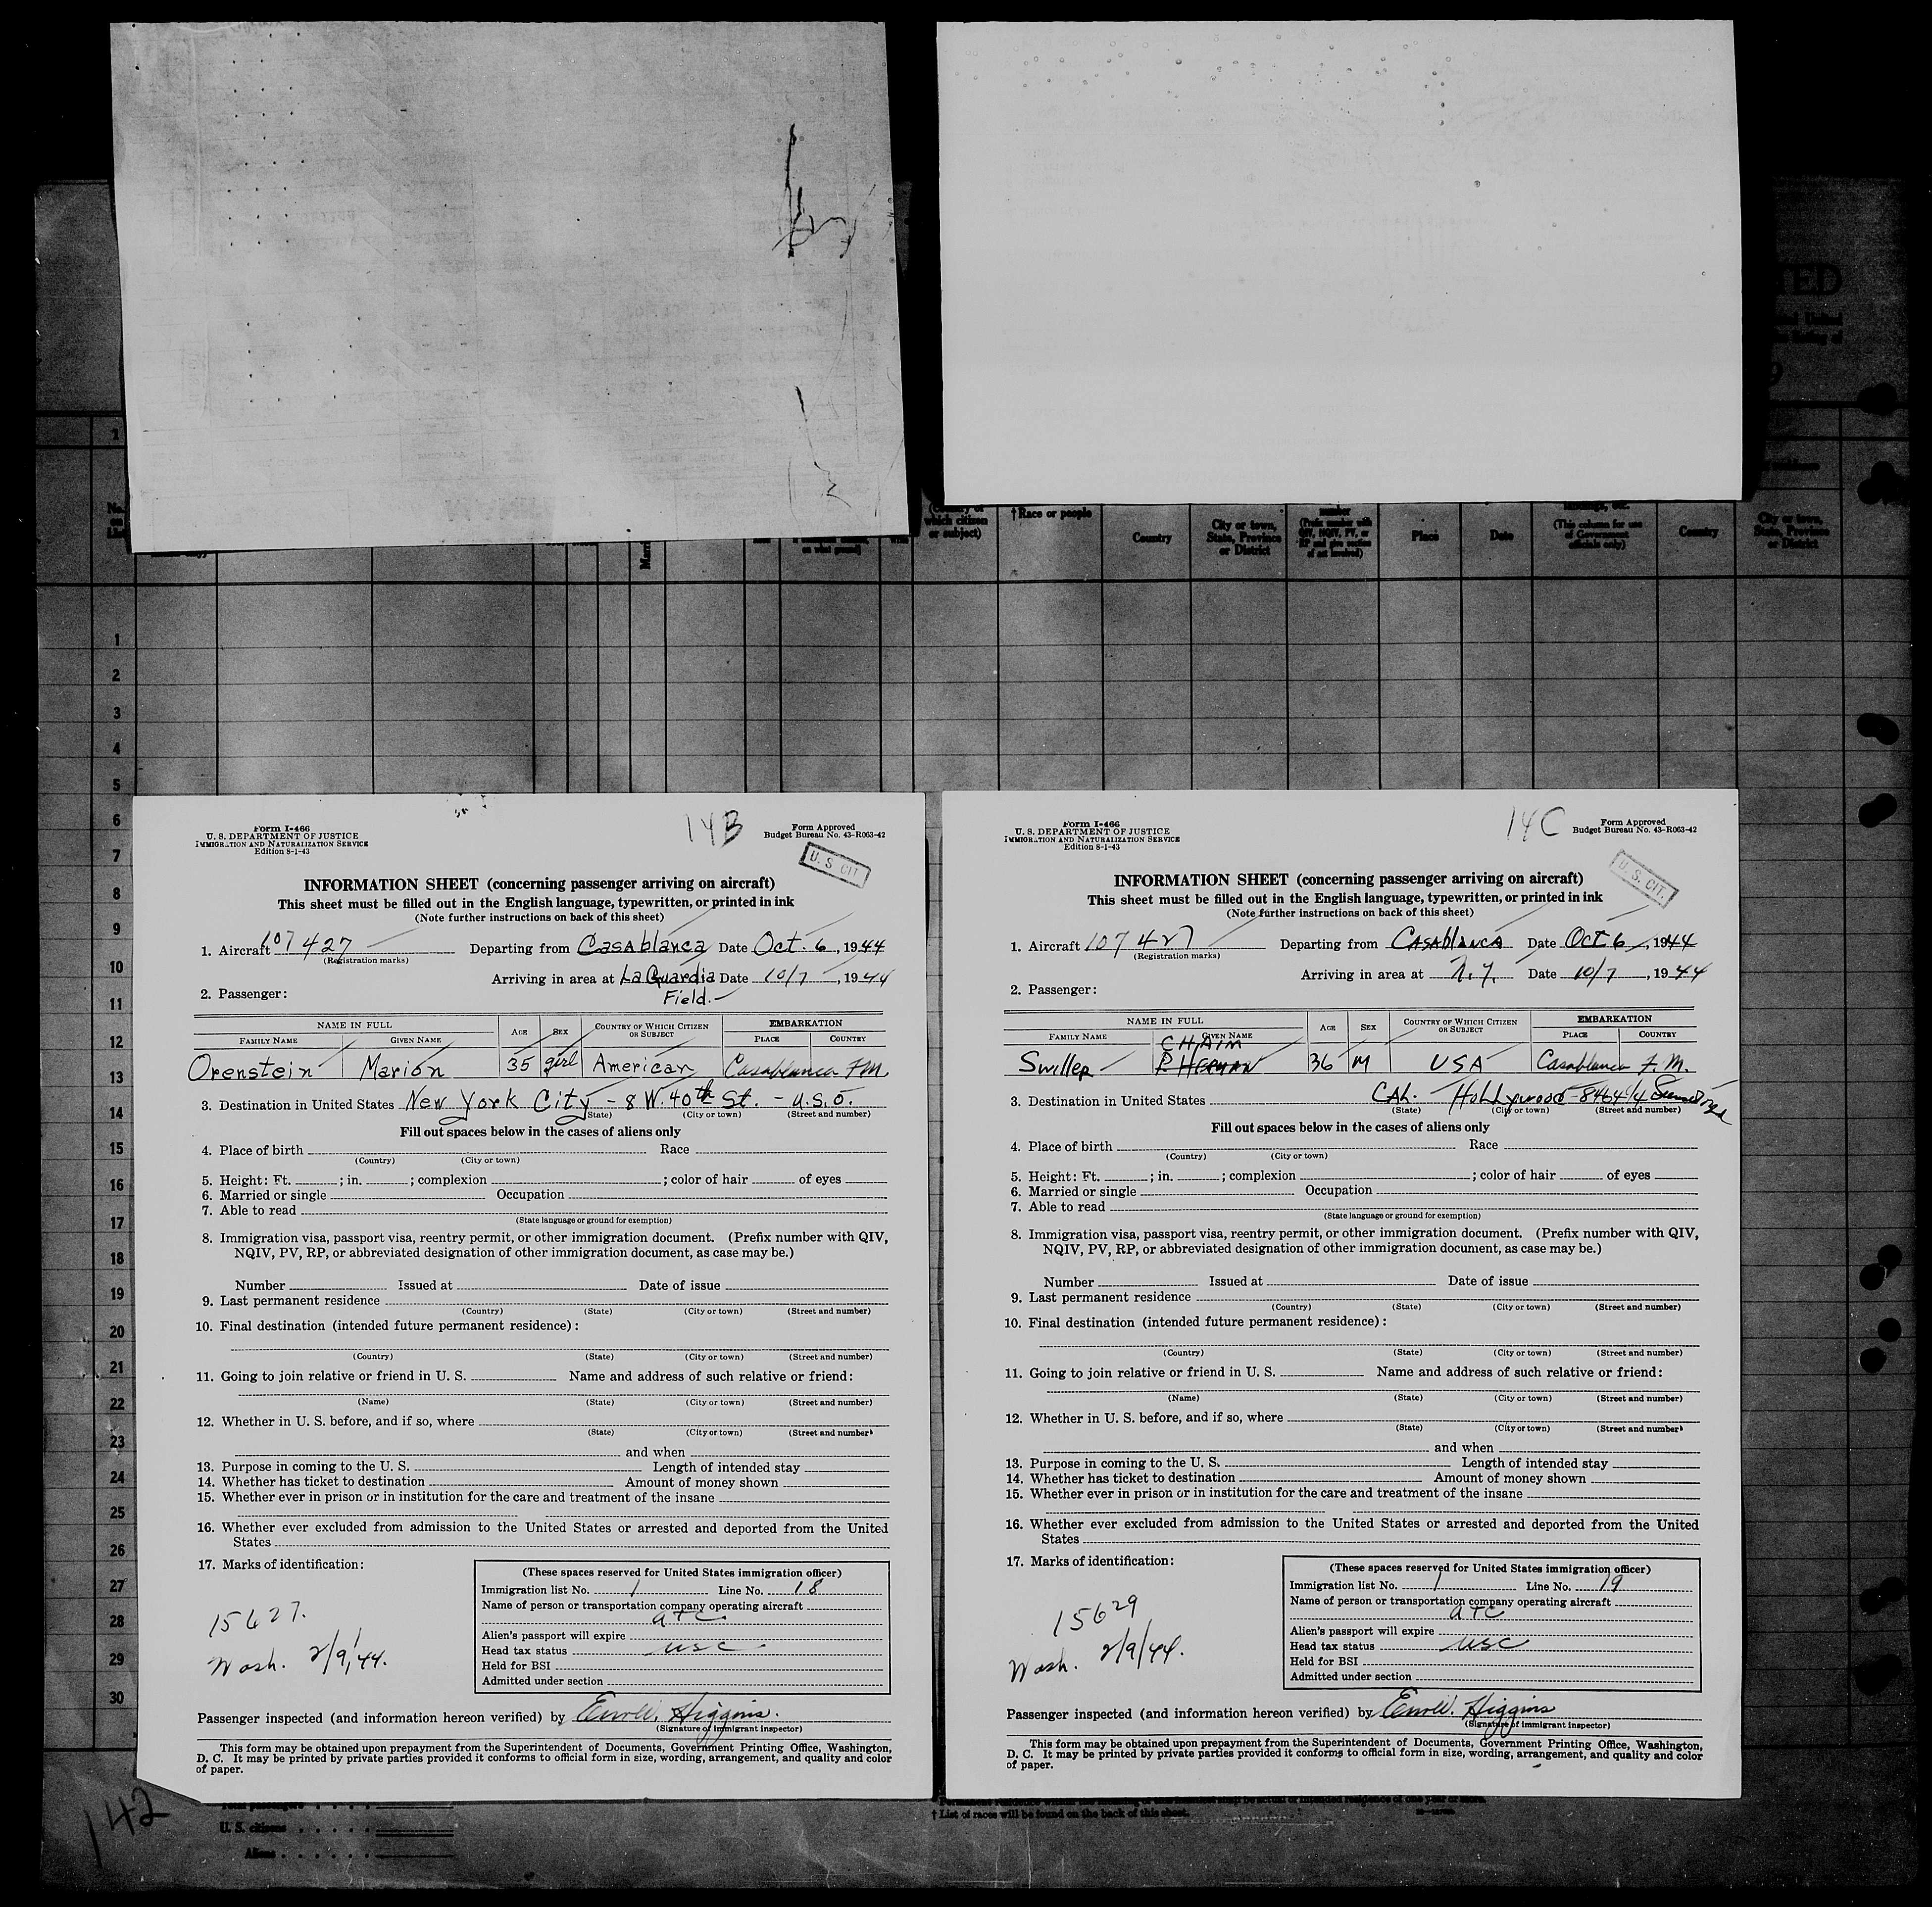 TED
1
No.
which citizen
or subject)
† Race or people
Country
City or town,
State, Province
or District
number
(Prefix number with
QIV, NQIV, PV, or
RP and give section
of act involved)
Place
Date
(This column for use
of Government
officials only)
Country
City or town,
State, Province
or District
1
2
3
4
5
6
7
8
9
10
11
12
13
14
15
16
17
18
19
20
21
22
23
24
25
26
27
28
29
30
14B
Form I-466
U. S. DEPARTMENT OF JUSTICE
IMMIGRATION AND NATURALIZATION SERVICE
Edition 8-1-43
Form Approved
Budget Bureau No. 43-R063-42
U. S. CIT.
INFORMATION SHEET (concerning passenger arriving on aircraft)
This sheet must be filled out in the English language, typewritten, or printed in ink
(Note further instructions on back of this sheet)
1. Aircraft 107 427 Departing from Casablanca Date Oct. 6, 1944
(Registration marks)
Arriving in area at La Guardia Date 10/7, 1944
Field.
2. Passenger:
NAME IN FULL AGE SEX COUNTRY OF WHICH CITIZEN OR SUBJECT EMBARKATION
FAMILY NAME GIVEN NAME PLACE COUNTRY
Orenstein Marion 35 girl American Casablanca F.M.
3. Destination in United States New York City - 8 W. 40th St. - U.S.O.
(State) (City or town) (Street and number)
Fill out spaces below in the cases of aliens only
4. Place of birth Race
(Country) (City or town)
5. Height: Ft. ; in. ; complexion ; color of hair of eyes
6. Married or single Occupation
7. Able to read
(State language or ground for exemption)
8. Immigration visa, passport visa, reentry permit, or other immigration document. (Prefix number with QIV,
NQIV, PV, RP, or abbreviated designation of other immigration document, as case may be.)
Number Issued at Date of issue
9. Last permanent residence
(Country) (State) (City or town) (Street and number)
10. Final destination (intended future permanent residence):
(Country) (State) (City or town) (Street and number)
11. Going to join relative or friend in U. S. Name and address of such relative or friend:
(Name) (State) (City or town) (Street and number)
12. Whether in U. S. before, and if so, where
(State) (City or town) (Street and number)
and when
13. Purpose in coming to the U. S. Length of intended stay
14. Whether has ticket to destination Amount of money shown
15. Whether ever in prison or in institution for the care and treatment of the insane
16. Whether ever excluded from admission to the United States or arrested and deported from the United
States
17. Marks of identification:
15627.
Wash. 2/9/44.
(These spaces reserved for United States immigration officer)
Immigration list No. 1 Line No. 18
Name of person or transportation company operating aircraft
atc
Alien's passport will expire
Head tax status usc
Held for BSI
Admitted under section
Passenger inspected (and information hereon verified) by Higgins.
(Signature of immigrant inspector)
This form may be obtained upon prepayment from the Superintendent of Documents, Government Printing Office, Washington,
D. C. It may be printed by private parties provided it conforms to official form in size, wording, arrangement, and quality and color
of paper.
14C
Form I-466
U. S. DEPARTMENT OF JUSTICE
IMMIGRATION AND NATURALIZATION SERVICE
Edition 8-1-43
Form Approved
Budget Bureau No. 43-R063-42
U. S. CIT.
INFORMATION SHEET (concerning passenger arriving on aircraft)
This sheet must be filled out in the English language, typewritten, or printed in ink
(Note further instructions on back of this sheet)
1. Aircraft 107 427 Departing from Casablanca Date Oct 6, 1944
(Registration marks)
Arriving in area at N.Y. Date 10/7, 1944
2. Passenger:
NAME IN FULL AGE SEX COUNTRY OF WHICH CITIZEN OR SUBJECT EMBARKATION
FAMILY NAME GIVEN NAME PLACE COUNTRY
CHAIM
Swiller P. HERMAN 36 M USA Casablanca F.M.
3. Destination in United States CAL. Hollywood - 8464 1/4 Sunset
(State) (City or town) (Street and number)
Fill out spaces below in the cases of aliens only
4. Place of birth Race
(Country) (City or town)
5. Height: Ft. ; in. ; complexion ; color of hair of eyes
6. Married or single Occupation
7. Able to read
(State language or ground for exemption)
8. Immigration visa, passport visa, reentry permit, or other immigration document. (Prefix number with QIV,
NQIV, PV, RP, or abbreviated designation of other immigration document, as case may be.)
Number Issued at Date of issue
9. Last permanent residence
(Country) (State) (City or town) (Street and number)
10. Final destination (intended future permanent residence):
(Country) (State) (City or town) (Street and number)
11. Going to join relative or friend in U. S. Name and address of such relative or friend:
(Name) (State) (City or town) (Street and number)
12. Whether in U. S. before, and if so, where
(State) (City or town) (Street and number)
and when
13. Purpose in coming to the U. S. Length of intended stay
14. Whether has ticket to destination Amount of money shown
15. Whether ever in prison or in institution for the care and treatment of the insane
16. Whether ever excluded from admission to the United States or arrested and deported from the United
States
17. Marks of identification:
15629
Wash. 2/9/44.
(These spaces reserved for United States immigration officer)
Immigration list No. 1 Line No. 19
Name of person or transportation company operating aircraft
atc
Alien's passport will expire
Head tax status usc
Held for BSI
Admitted under section
Passenger inspected (and information hereon verified) by Higgins
(Signature of immigrant inspector)
This form may be obtained upon prepayment from the Superintendent of Documents, Government Printing Office, Washington,
D. C. It may be printed by private parties provided it conforms to official form in size, wording, arrangement, and quality and color
of paper.
142
Total passengers
U. S. citizens
Aliens
† List of races will be found on the back of this sheet.